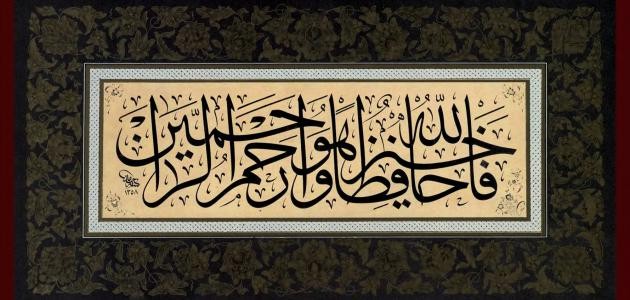 فالله خير حافظا وهو أرحم الراحمين
١٣٥٨